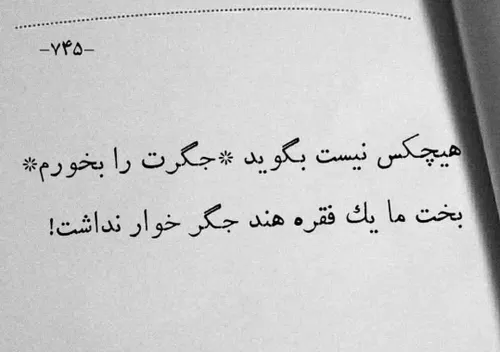 -۷۴۵-
هیچکس نیست بگوید *جگرت را بخورم*
بخت ما یك فقره هند جگر خوار نداشت!